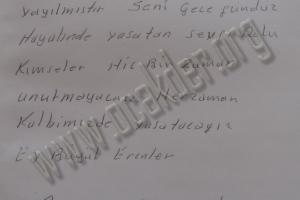 yayılmıştır Seni Gece gündüz
Hayalinde yaşatan
Kimseler Hiç Bir zaman
unutmayacak Herzaman
Kalbimizde yaşatacağız
Büyük Erenler
www.ocakder.org